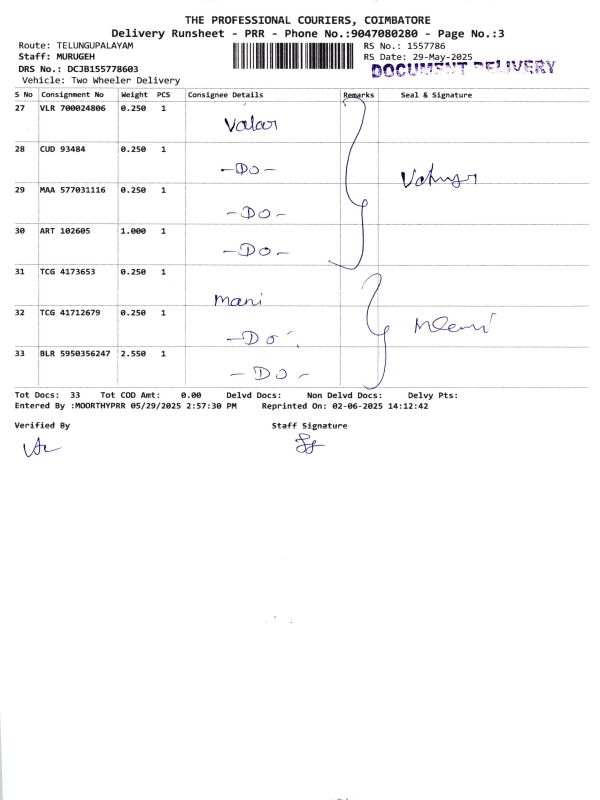 THE PROFESSIONAL COURIERS, COIMBATORE
Delivery Runsheet - PRR - Phone No.:9047080280 - Page No.:3
Route: TELUNGUPALAYAM RS No.: 1557786
Staff: MURUGEH RS Date: 29-May-2025
DRS No.: DCJB155778603 DOCUMENT DELIVERY
Vehicle: Two Wheeler Delivery
S No Consignment No Weight PCS Consignee Details Remarks Seal & Signature
27 VLR 700024806 0.250 1 Valar
28 CUD 93484 0.250 1 -DO-
29 MAA 577031116 0.250 1 -DO-
30 ART 102605 1.000 1 -DO-
31 TCG 4173653 0.250 1 mani
32 TCG 41712679 0.250 1 -DO-
33 BLR 5950356247 2.550 1 -DO-
Tot Docs: 33 Tot COD Amt: 0.00 Delvd Docs: Non Delvd Docs: Delvy Pts:
Entered By :MOORTHYPRR 05/29/2025 2:57:30 PM Reprinted On: 02-06-2025 14:12:42
Verified By Staff Signature